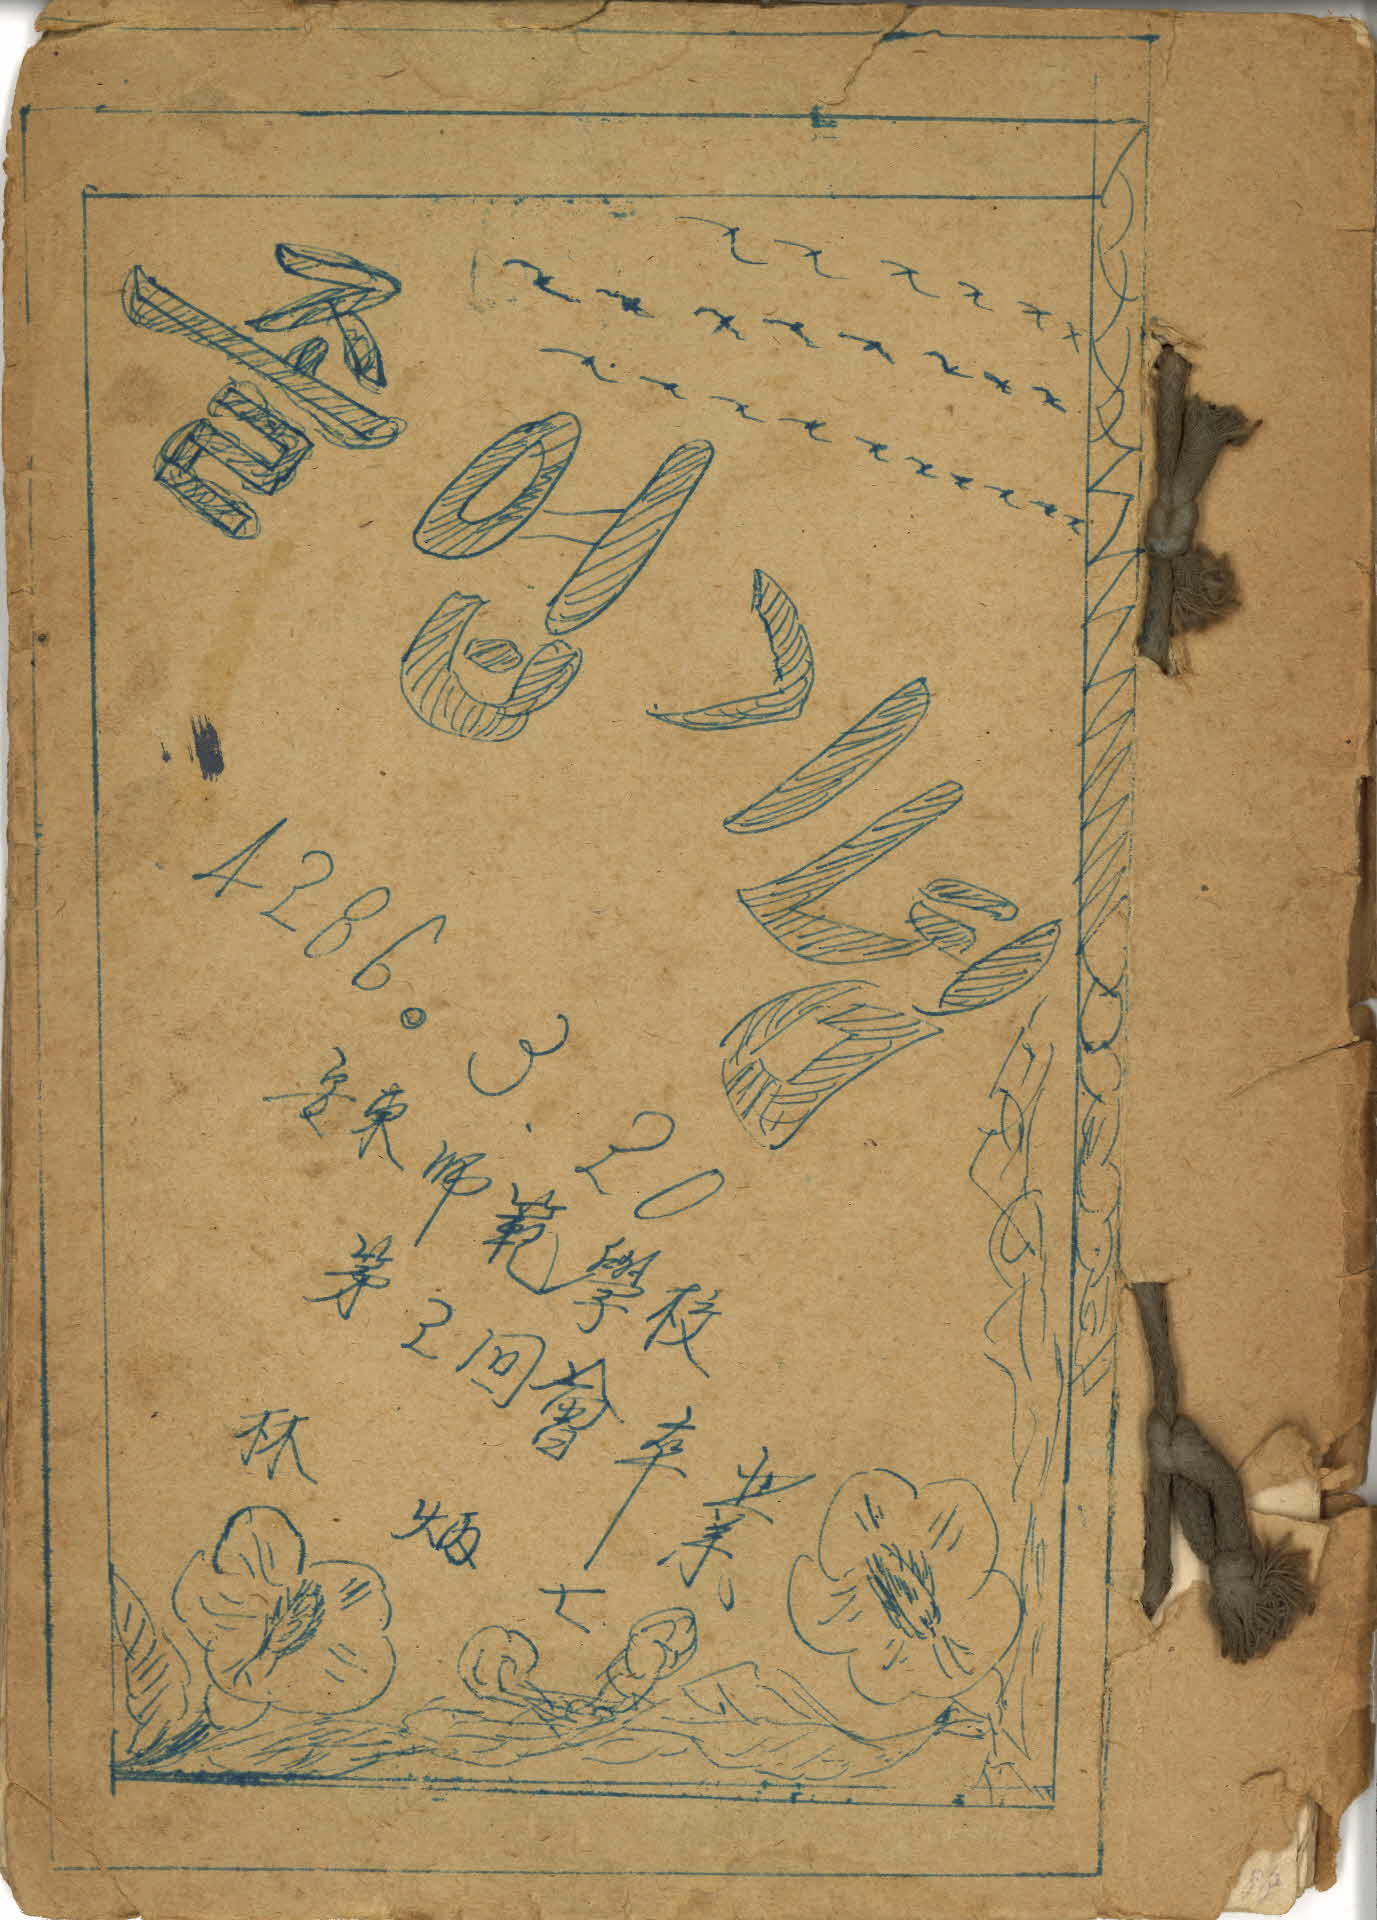 졸업기념
4286. 3. 20
安東師範學校
第2回會卒業
林炳七